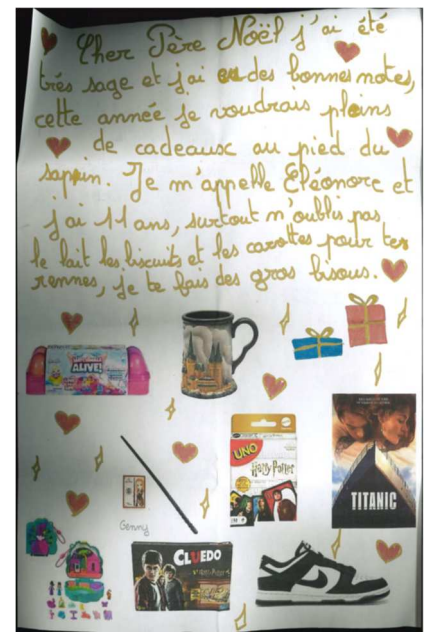 Cher Père Noël j'ai été
très sage et j'ai eu des bonnes notes,
cette année je voudrais pleins
de cadeausc au pied du
sapin. Je m'appelle Eléonore et
j'ai 11 ans, surtout n'oublis pas
le lait les biscuits et les carottes pour tes
rennes, je te fais des gros bisous.
ALIVE!
UNO
Harry Potter
TITANIC
Genny
CLUEDO